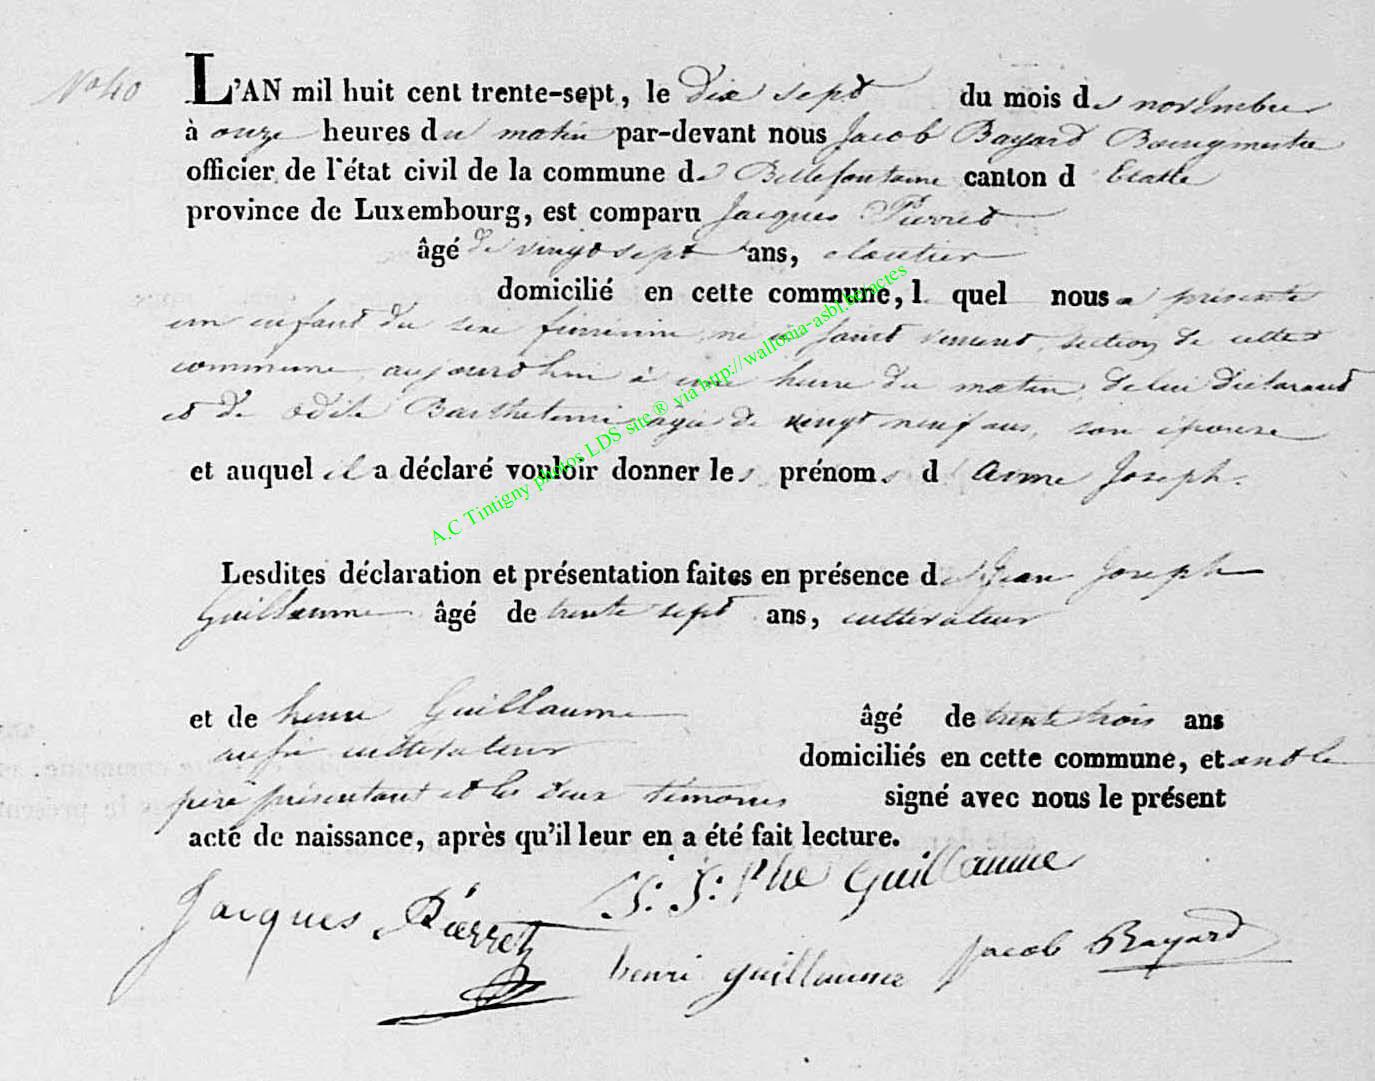 No 40
L'AN mil huit cent trente-sept, le dix sept du mois de novembre
à onze heures du matin par-devant nous Jacob Bayard Bourgmestre
officier de l'état civil de la commune de Bellefontaine canton d'Etalle
province de Luxembourg, est comparu Jacques Pierret
âgé de vingt sept ans, cloutier
domicilié en cette commune, lequel nous a présenté
un enfant du sexe féminin, né à Saint Vincent, section de cette
commune, aujourd'hui à une heure du matin, de lui déclarant
et de Odile Barthelemi agée de vingt neuf ans, son épouse
et auquel il a déclaré vouloir donner les prénoms d'Anne Joseph.
Lesdites déclaration et présentation faites en présence de Jean Joseph
Guillaume âgé de trente sept ans, cultivateur
et de henri Guillaume âgé de trente trois ans
aussi cultivateur domiciliés en cette commune, et ont le
père présentant et les deux témoins signé avec nous le présent
acte de naissance, après qu'il leur en a été fait lecture.
Jacques Pierret J: J: Phe Guillaume
henri guillaume Jacob Bayard
A.C Tintigny photos LDS site ® via http://wallonia-asbl.be/actes